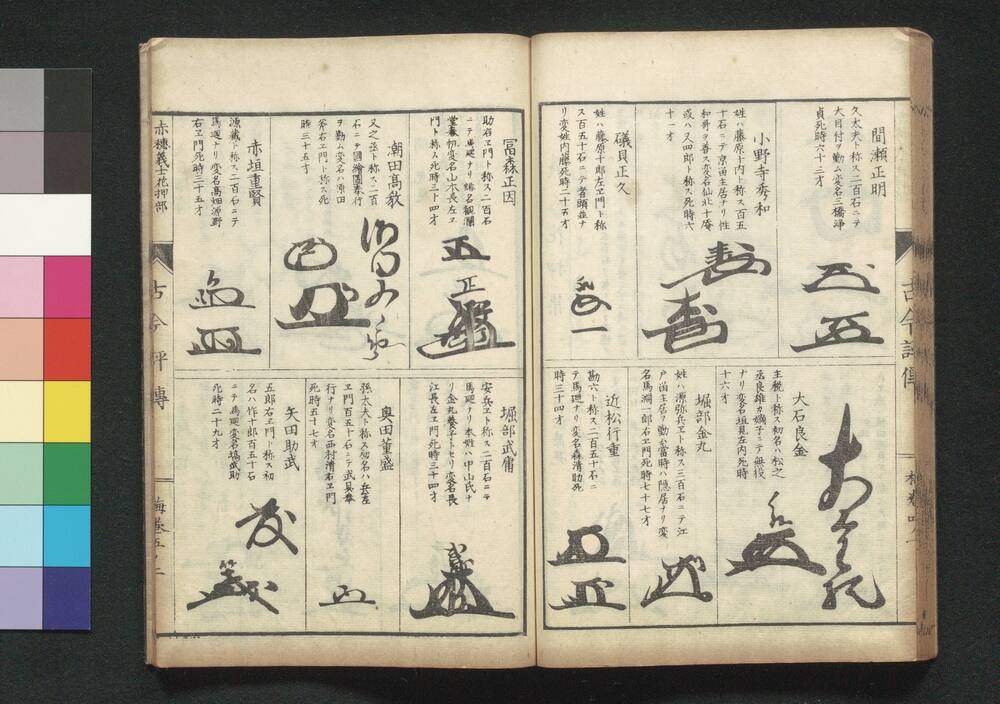 間瀬正明
久太夫ト称ス二百石ニテ
大目付ヲ勤ム変名三橋浄
貞死時六十三才
小野寺秀和
姓ハ藤原十内ト称ス百五
十石ニテ京留主居ナリ性
和哥ヲ善ス変名仙北十庵
或ハ又四郎ト称ス死時六
十一才
礒貝正久
姓ハ藤原十郎左ヱ門ト称
ス百五十石ニテ者頭並ナ
リ変姓内藤死時二十五才
大石良金
主税ト称ス初名ハ松之
丞良雄カ嫡子ニテ無役
ナリ変名垣見左内死時
十六才
堀部金丸
姓ハ源弥兵ヱト称ス三百石ニテ江
戸留主居ヲ勤ム當時ハ隠居ナリ変
名馬淵一郎右ヱ門死時七十七才
近松行重
勘六ト称ス二百五十石ニ
テ馬廻ナリ変名森清助死
時三十四才
冨森正因
助右ヱ門ト称ス二百石
ニテ馬廻ナリ
変名山本長左ヱ
門ト称ス死時三十四才
潮田高教
又之丞ト称ス二百
石ニテ國繪圖奉行
ヲ勤ム変名ハ原田
斧右ヱ門ト称ス死
時三十五才
赤垣重賢
源蔵ト称ス二百石ニテ
馬廻ナリ変名高畑源野
右ヱ門死時三十五才
堀部武庸
安兵ヱト称ス二百石ニテ
馬廻ナリ本姓ハ中山氏ナ
リ金丸養子トセリ変名長
江長左ヱ門死時三十四才
奥田重盛
孫太夫ト称ス初名ハ兵左
ヱ門百五十石ニテ武具奉
行ナリ変名西村清右ヱ門
死時五十七才
矢田助武
五郎右ヱ門ト称ス初
名ハ作十郎百五十石
ニテ馬廻変名塙武助
死時二十九才
赤穂義士花押部
古今評傳